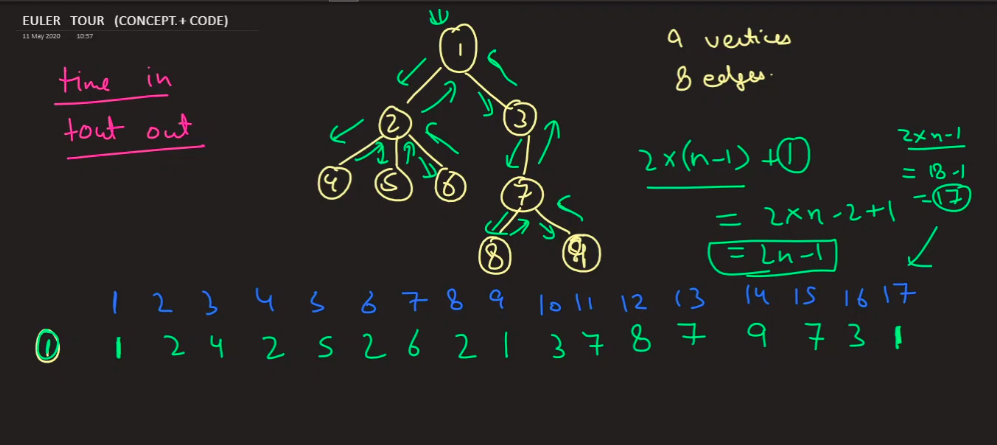 EULER TOUR (CONCEPT. + CODE)
11 May 2020 10:57
time in
tout out
1
2
3
4
5
6
7
8
9
9 vertices
8 edges.
2×(n-1) + 1
= 2×n-2+1
= 2n-1
2×n-1
= 18-1
= 17
1 2 3 4 5 6 7 8 9 10 11 12 13 14 15 16 17
1 1 2 4 2 5 2 6 2 1 3 7 8 7 9 7 3 1